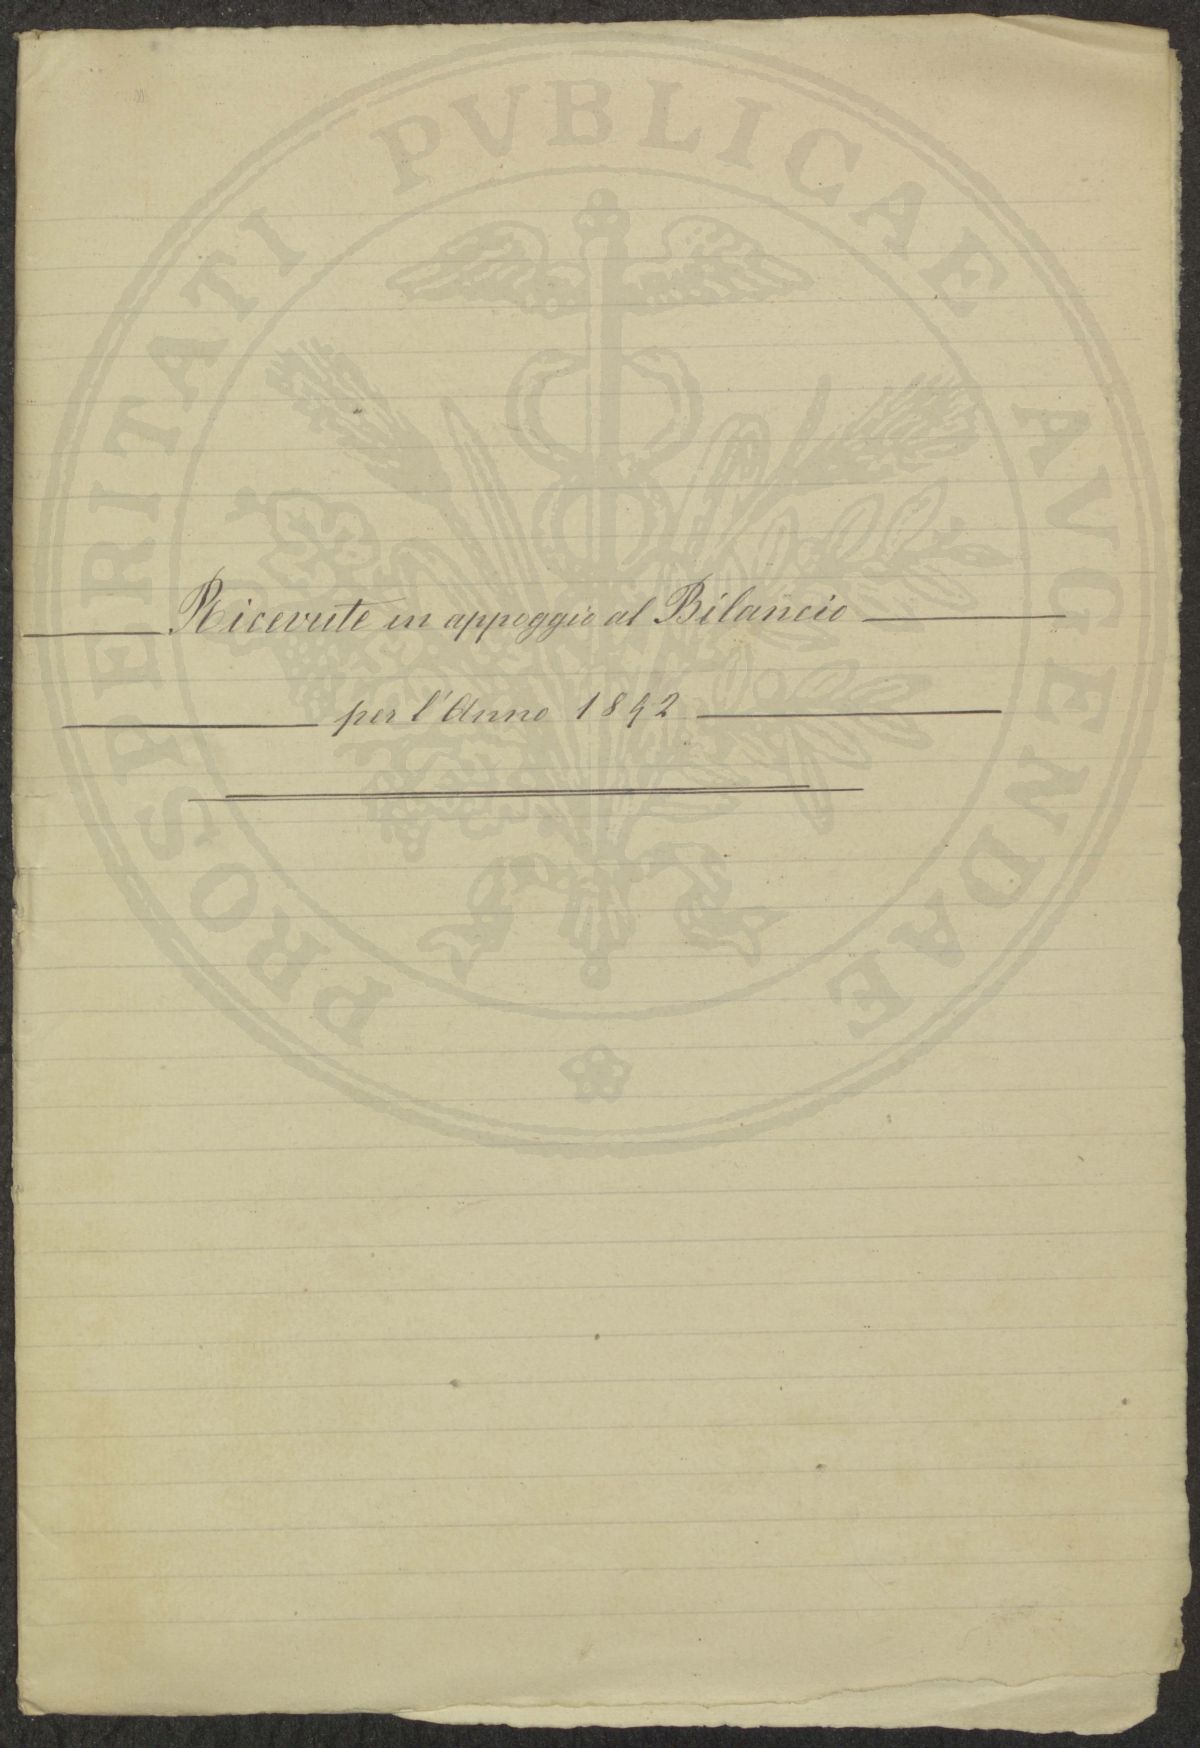 Ricevute in appoggio al Bilancio
per l'Anno 1842
PROSPERITATI PVBLICAE AVGENDAE